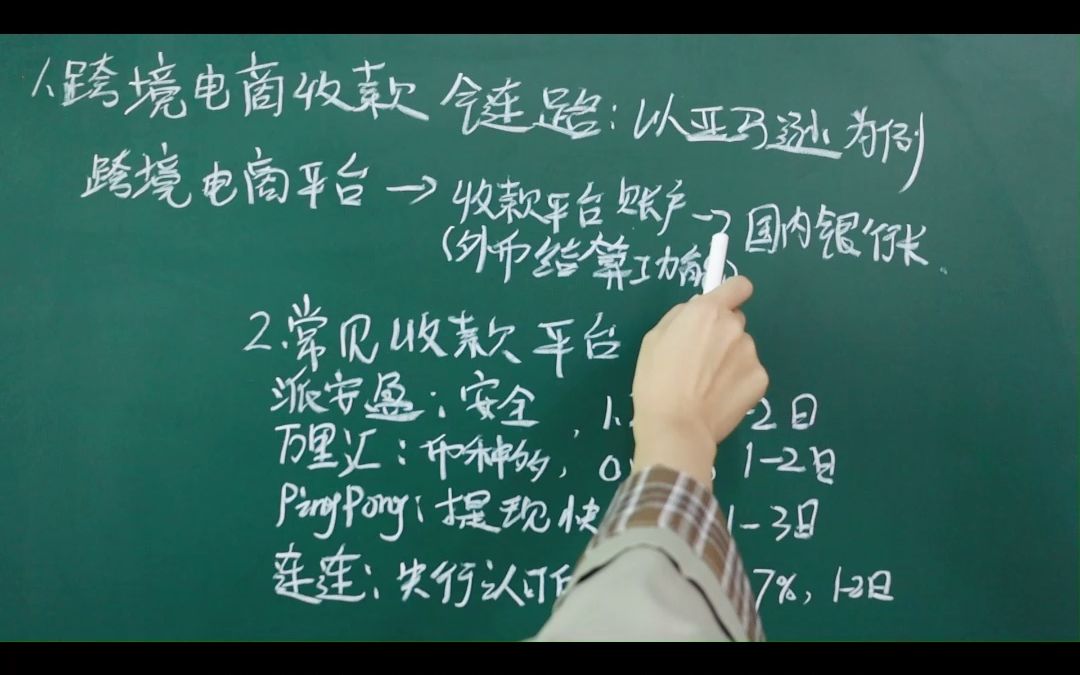 1.跨境电商收款链路:以亚马逊为例
跨境电商平台→收款平台账户→国内银行卡.
(外币结算功能)
2.常见收款平台
派安盈:安全, 1. -2日
万里汇:币种多, 0. 1-2日
PingPong:提现快 1-3日
连连:央行认可 7%, 1-2日